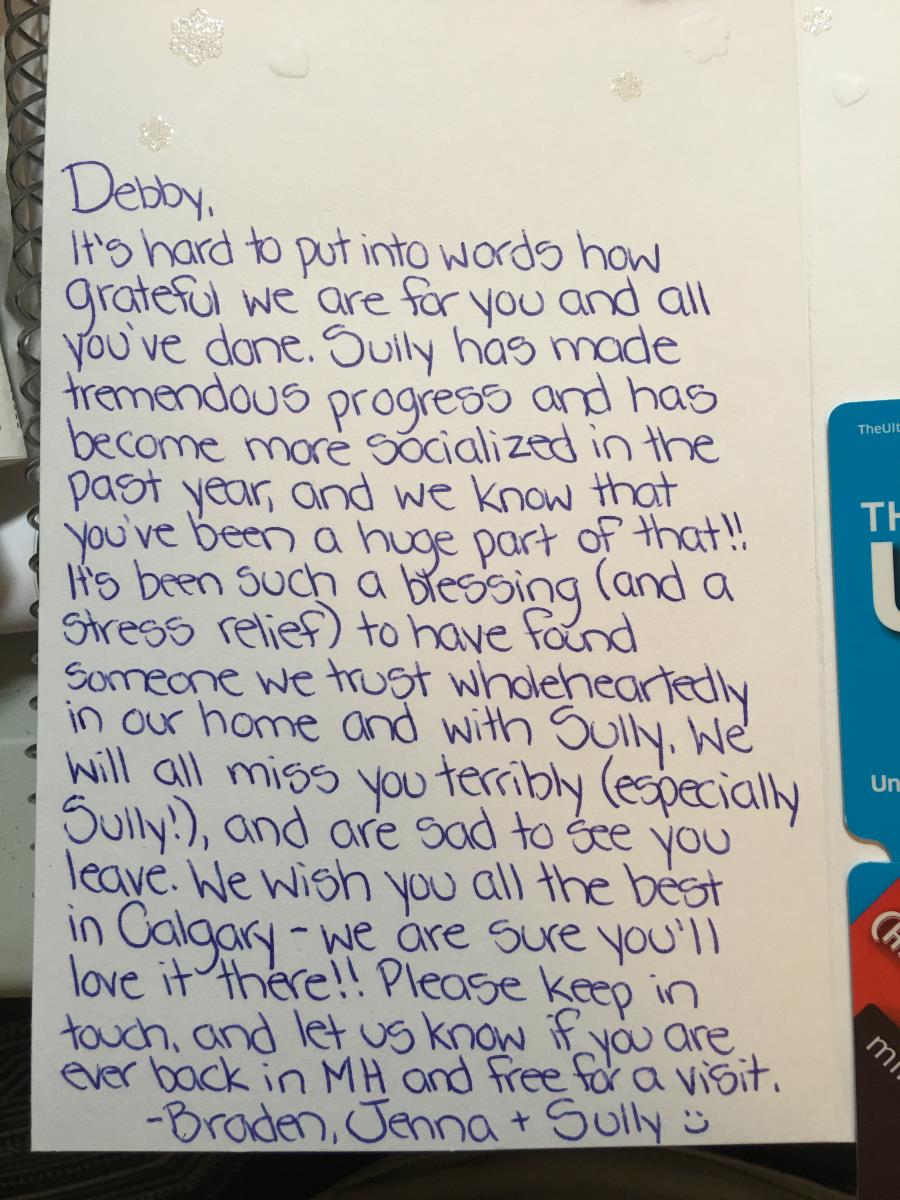 Debby,
It's hard to put into words how
grateful we are for you and all
you've done. Sully has made
tremendous progress and has
become more socialized in the
past year, and we know that
you've been a huge part of that!!
It's been such a blessing (and a
stress relief) to have found
someone we trust wholeheartedly
in our home and with Sully. We
will all miss you terribly (especially
Sully!), and are sad to see you
leave. We wish you all the best
in Calgary - we are sure you'll
love it there!! Please keep in
touch, and let us know if you are
ever back in MH and free for a visit.
-Braden, Jenna + Sully :)
TheUlt
TH
U
Un